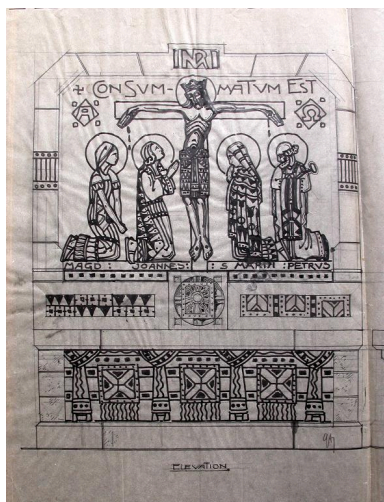 INRI
CONSUMMATUM EST
A Ω
MAGD: JOANNES: :S MARIA :PETRVS
ELEVATION